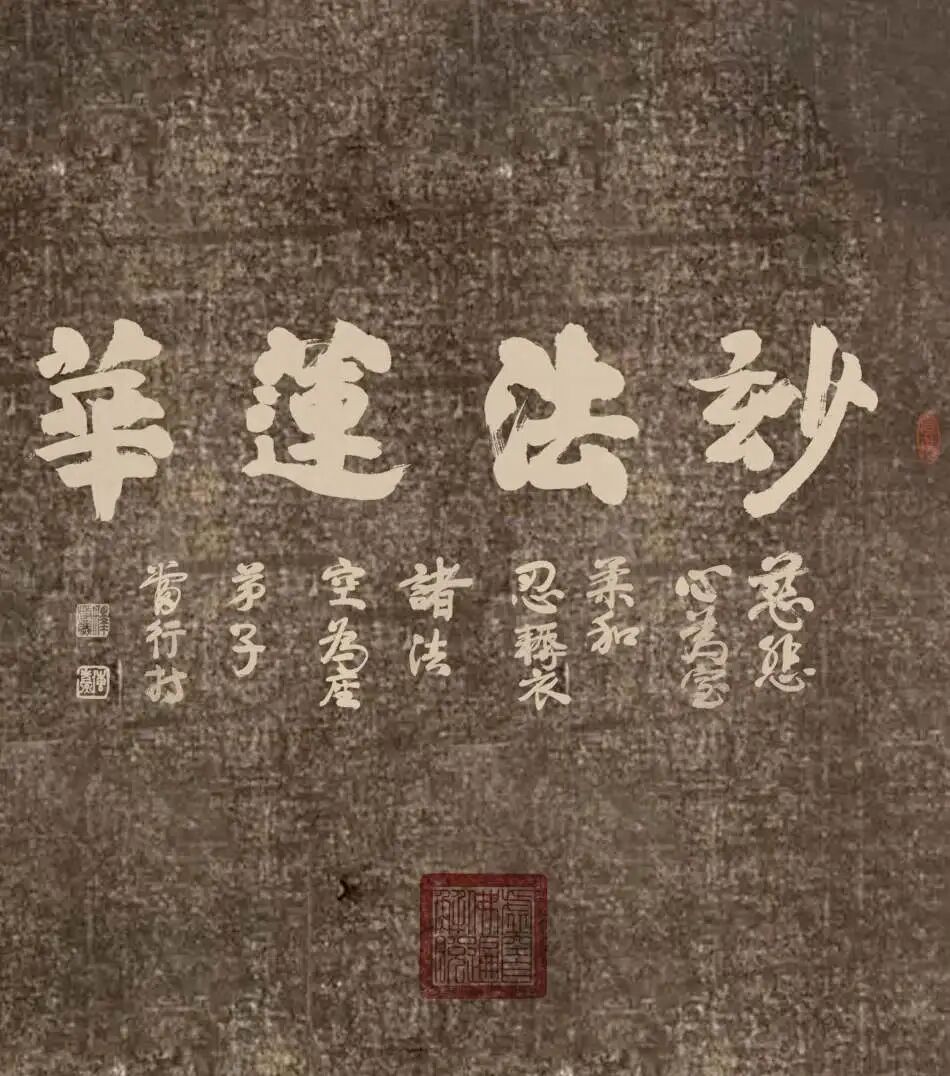 玅法蓮華
慈悲
心為室
柔和
忍辱衣
諸法
空為座
弟子
行